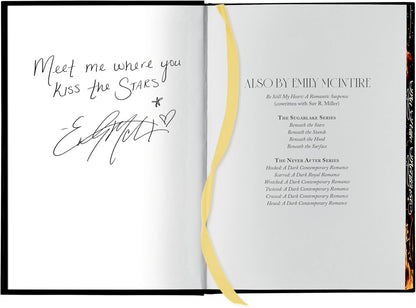 Meet me where you
Kiss the STARS
ALSO BY EMILY MCINTIRE
Be Still My Heart: A Romantic Suspense
(cowritten with Sav R. Miller)
THE SUGARLAKE SERIES
Beneath the Stars
Beneath the Stands
Beneath the Hood
Beneath the Surface
THE NEVER AFTER SERIES
Hooked: A Dark Contemporary Romance
Scarred: A Dark Royal Romance
Wretched: A Dark Contemporary Romance
Twisted: A Dark Contemporary Romance
Crossed: A Dark Contemporary Romance
Hexed: A Dark Contemporary Romance